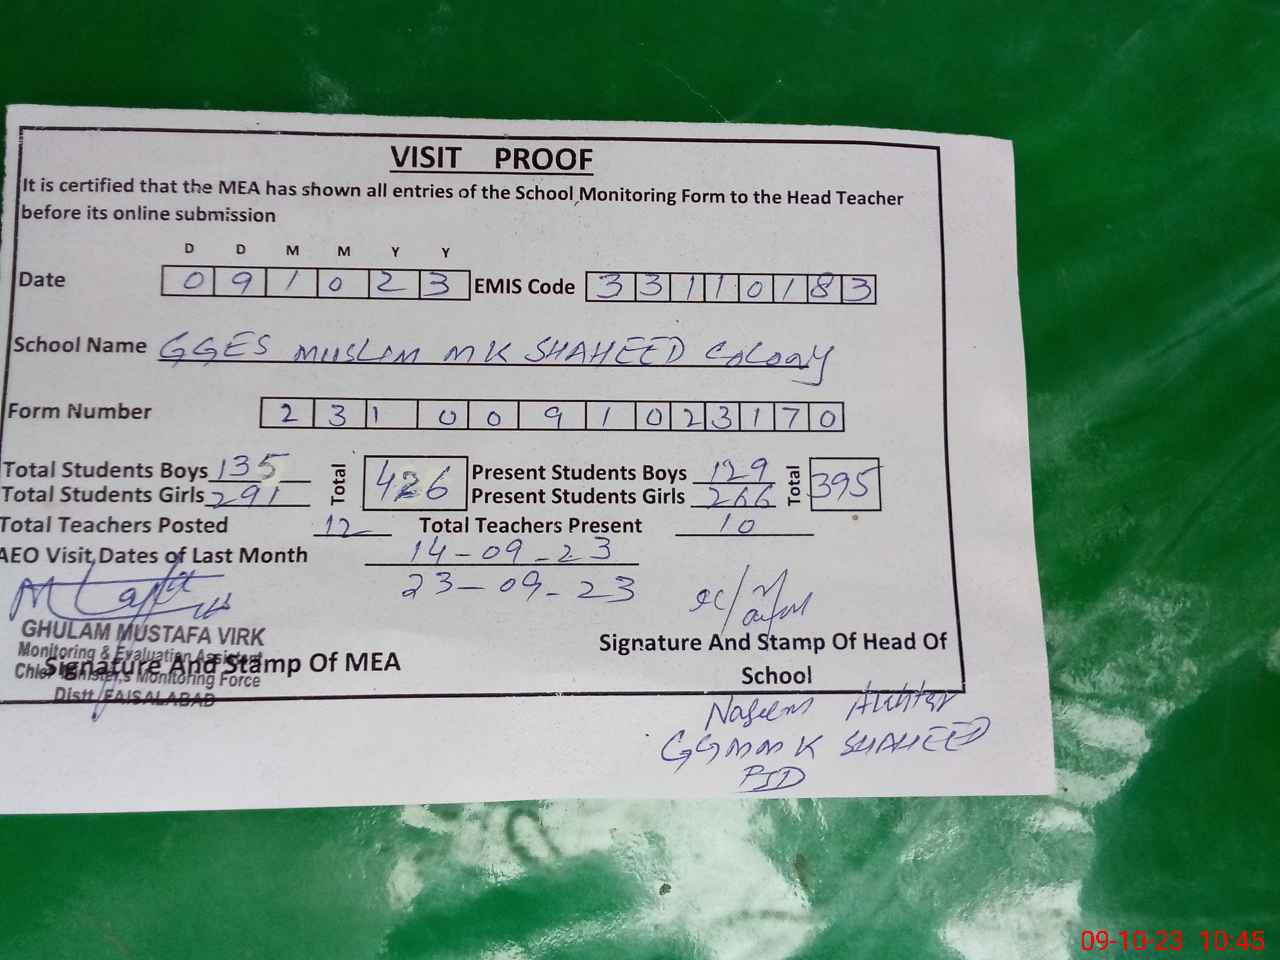 VISIT PROOF
It is certified that the MEA has shown all entries of the School Monitoring Form to the Head Teacher
before its online submission
D D M M Y Y
Date 0 9 1 0 2 3 EMIS Code 3 3 1 1 0 1 8 3
School Name GGES MUSLIM MK SHAHEED COLONY
Form Number 2 3 1 0 0 9 1 0 2 3 1 7 0
Total Students Boys 135 Total 426 Present Students Boys 129 Total 395
Total Students Girls 291 Present Students Girls 266
Total Teachers Posted 12 Total Teachers Present 10
AEO Visit Dates of Last Month 14-09-23
23-09-23
GHULAM MUSTAFA VIRK
Monitoring & Evaluation Assistant
Chief Minister,s Monitoring Force
Distt FAISALABAD
Signature And Stamp Of MEA
Signature And Stamp Of Head Of
School
Naseem Akhter
SHAHEED
09-10-23 10:45